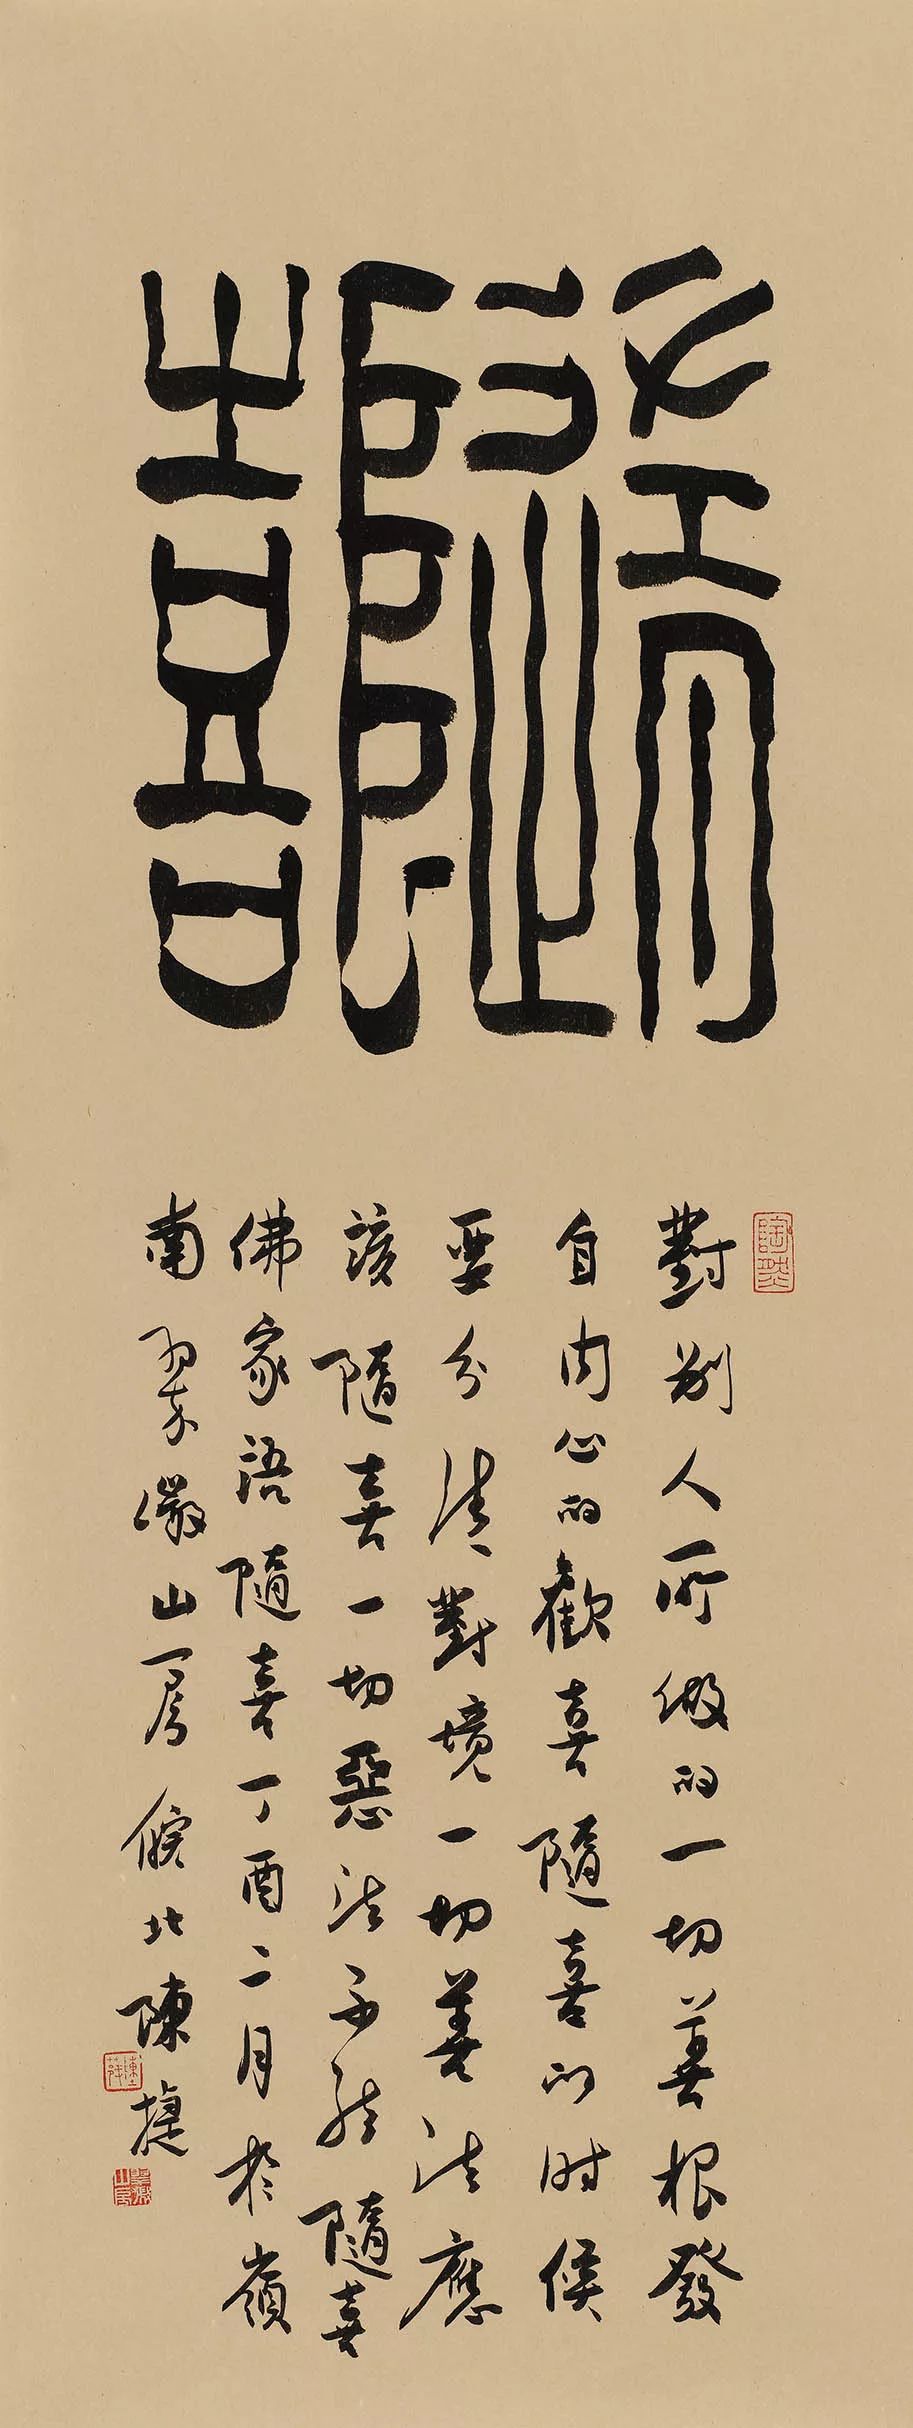 隨喜
對別人所做的一切善根發
自内心的歡喜隨喜的时候
要分清對境一切善法應
該隨喜一切惡法不能隨喜
佛家语隨喜丁酉二月於嶺
南翠微山房皖北陳捷
陶然